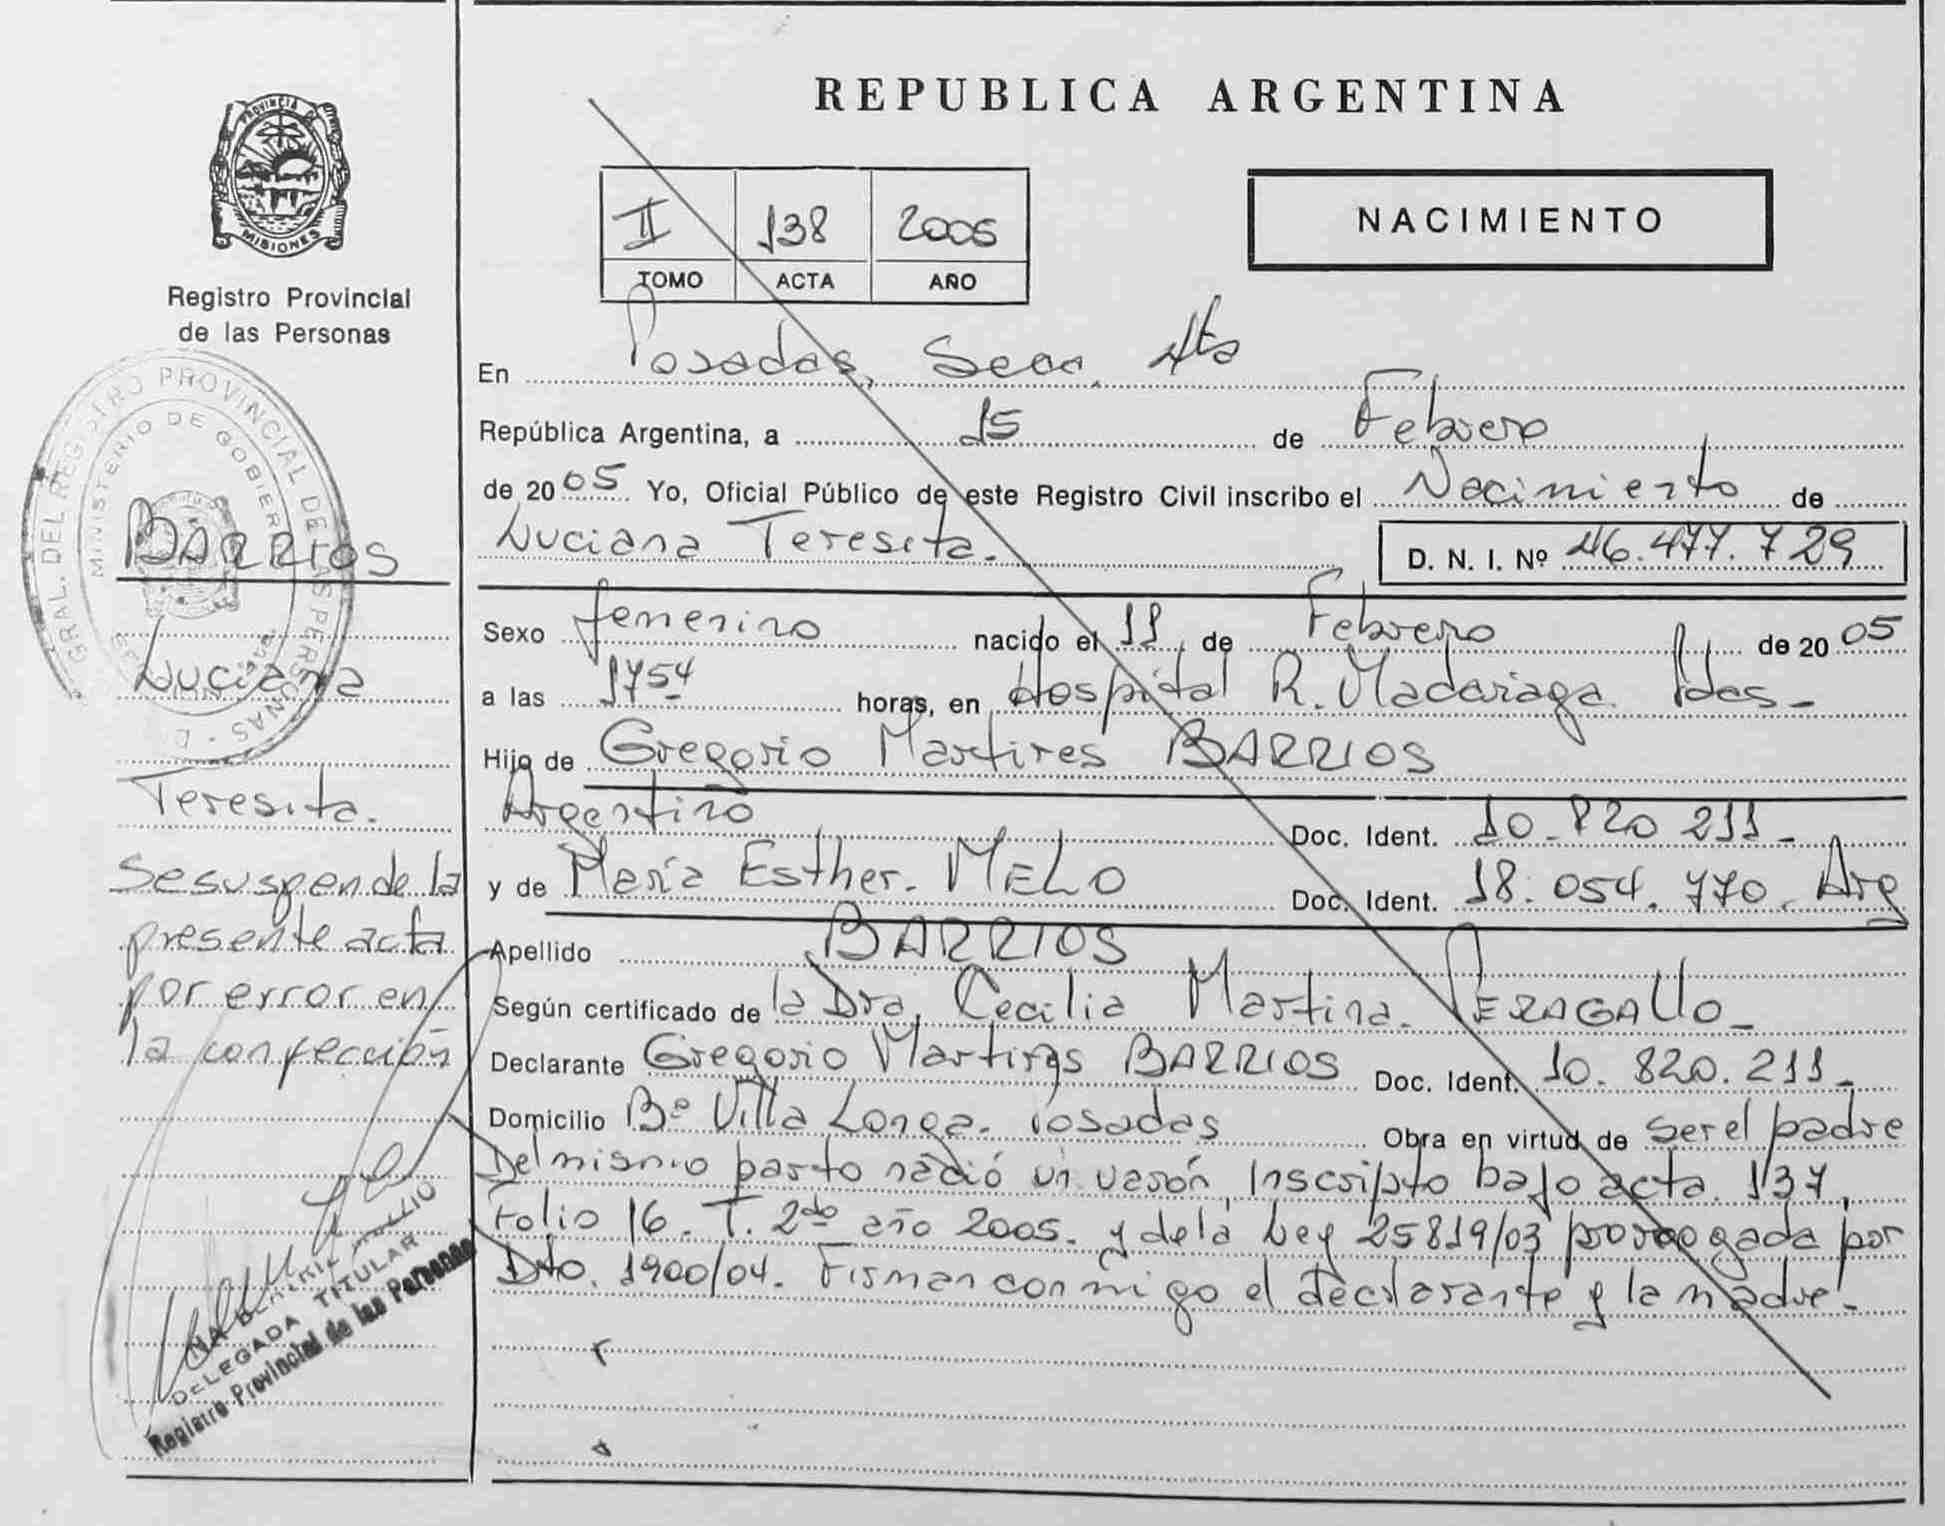 REPUBLICA ARGENTINA
PROVINCIA DE
MISIONES
Registro Provincial
de las Personas
II 138 2005
TOMO ACTA AÑO
NACIMIENTO
En Posadas, Secc. 4ta
República Argentina, a 15 de Febrero
de 2005 Yo, Oficial Público de este Registro Civil inscribo el Nacimiento de
Luciana Teresita. D. N. I. Nº 46.477.729
Sexo femenino nacido el 11 de Febrero de 2005
a las 1754 horas, en Hospital R. Madariaga. Pdas-
Hijo de Gregorio Martires BARRIOS
Argentino Doc. Ident. 10-820 211-
y de María Esther. MELO Doc. Ident. 18.054.770. Arg
Apellido BARRIOS
Según certificado de la Dra. Cecilia Martina. PERAGALLO-
Declarante Gregorio Martires BARRIOS Doc. Ident. 10.820.211-
Domicilio Bº Villa Longa. Posadas Obra en virtud de ser el padre
Del mismo parto nació un varón, Inscripto bajo acta 137,
Folio 16. T. 2do año 2005. y de la Ley 25819/03 prorrogada por
Dto. 1900/04. Firman conmigo el declarante y la madre-
GRAL. DEL REGISTRO PROVINCIAL DE LAS PERSONAS
MINISTERIO DE GOBIERNO
BARRIOS
Luciana
Teresita.
Se suspende la
presente acta
por error en
la confección
DELEGADA TITULAR
Registro Provincial de las Personas